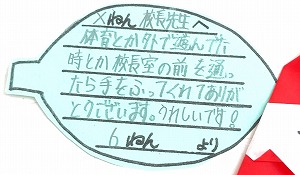 ×ねん 校長先生へ
体育とか外で遊んでた
時とか校長室の前を通っ
たら手をふってくれてありが
とうございます。うれしいです!
6ねん より